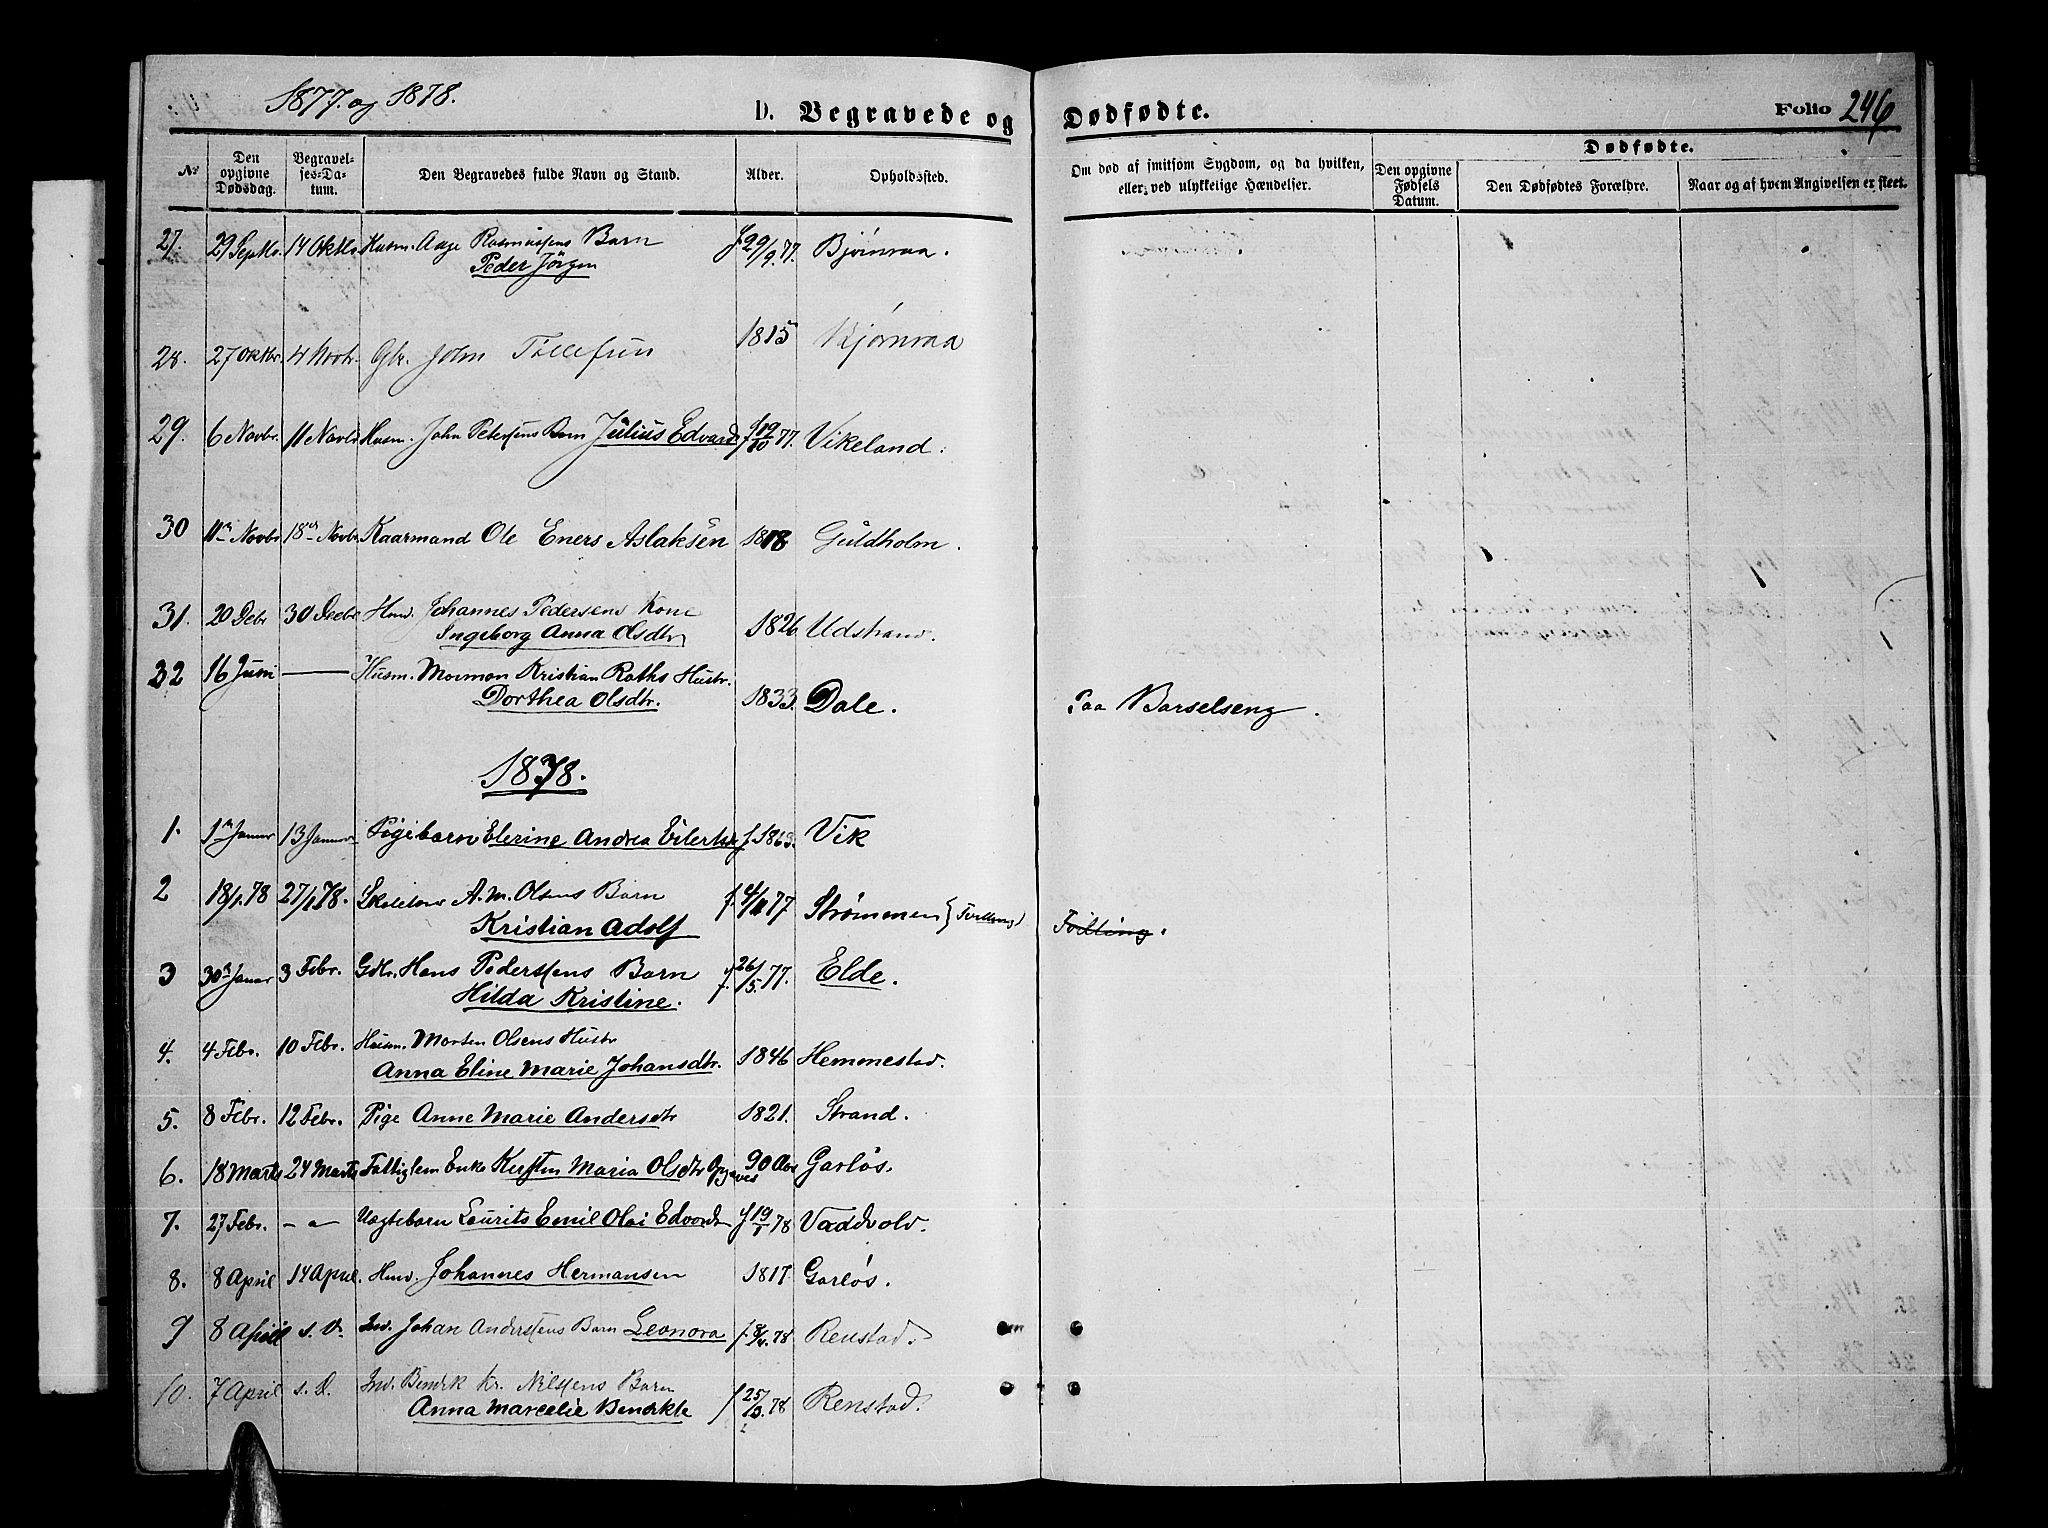 1877. og 1878.
D. Begravede og Dødfødte.
Folio 246
No
Den opgivne Dødsdag.
Begravel-ses-Da-tum.
Den Begravedes fulde Navn og Stand.
Alder.
Opholdssted.
Om død af smitsom Sygdom, og da hvilken, eller ved ulykkelige Hændelser.
Dødfødte.
Den opgivne Fødsels Datum.
Den Dødfødtes Forældre.
Naar og af hvem Angivelsen er skeet.
27. 29 Septbr. 14 Oktbr. Husm. Aage Rasmussens Barn f 29/9.77. Bjørnraa.
Peder Jörgen
28. 27 Oktbr. 4 Novbr. Gbr. John Tollefsen 1815 Bjørnraa
29. 6 Novbr. 11 Novbr Husm. John Petersens Barn Julius Edvard f 19/10 77. Vikeland.
30 11te Novbr 18de Novbr Kaarmand Ole Eners Aslaksen 1818 Guldholm.
31. 20 Debr 30 Decbr Hmd. Johannes Pedersens Kone
Ingeborg Anna Olsdtr 1826. Udstrand.
32 16 Juni — Husm. Mormon Kristian Raths Hustr.
Dorthea Olsdtr. 1833. Dale. Paa Barselseng.
1878.
1. 1ste Januar 13 Januar Pigebarn Elerine Andrea Eilertsd f. 1863. Vik
2 18/1.78 27/1 78. A. M. Olsens Barn f. 77 Strømmen (Tvilling)
Kristian Adolf Tvilling.
3 30te Januar 3 Febr. Gdbr. Hans Pedersens Barn f. 26/5.77. Elde.
Hilda Kristine.
4. 4 Febr. 10 Febr. Husm. Morten Olsens Hustr
Anna Eline Marie Johansdtr. 1846 Hemmestad.
5. 8 Febr. 12 Febr. Pige Anne Marie Andersdtr 1821. Strand.
6. 18 Marts 24 Marts Fattiglem Enke Kirsten Maria Olsdtr Opgaves 90 Aar Garløs.
7. 27 Febr. - " - Uægtebarn Laurits Emil Olai Edvards f 19/1 78 Vaddvold.
8. 8 April 14 April. Hmd. Johannes Hermansen 1817. Garløs.
9 8 April s. D. Ind. Johan Andersens Barn Leonora f. 78 Renstad.
10. 7 April s. D. Ind. Bendik Kr. Nilsens Barn
Anna Marcelie Bendikte f 25/3.78 Renstad.